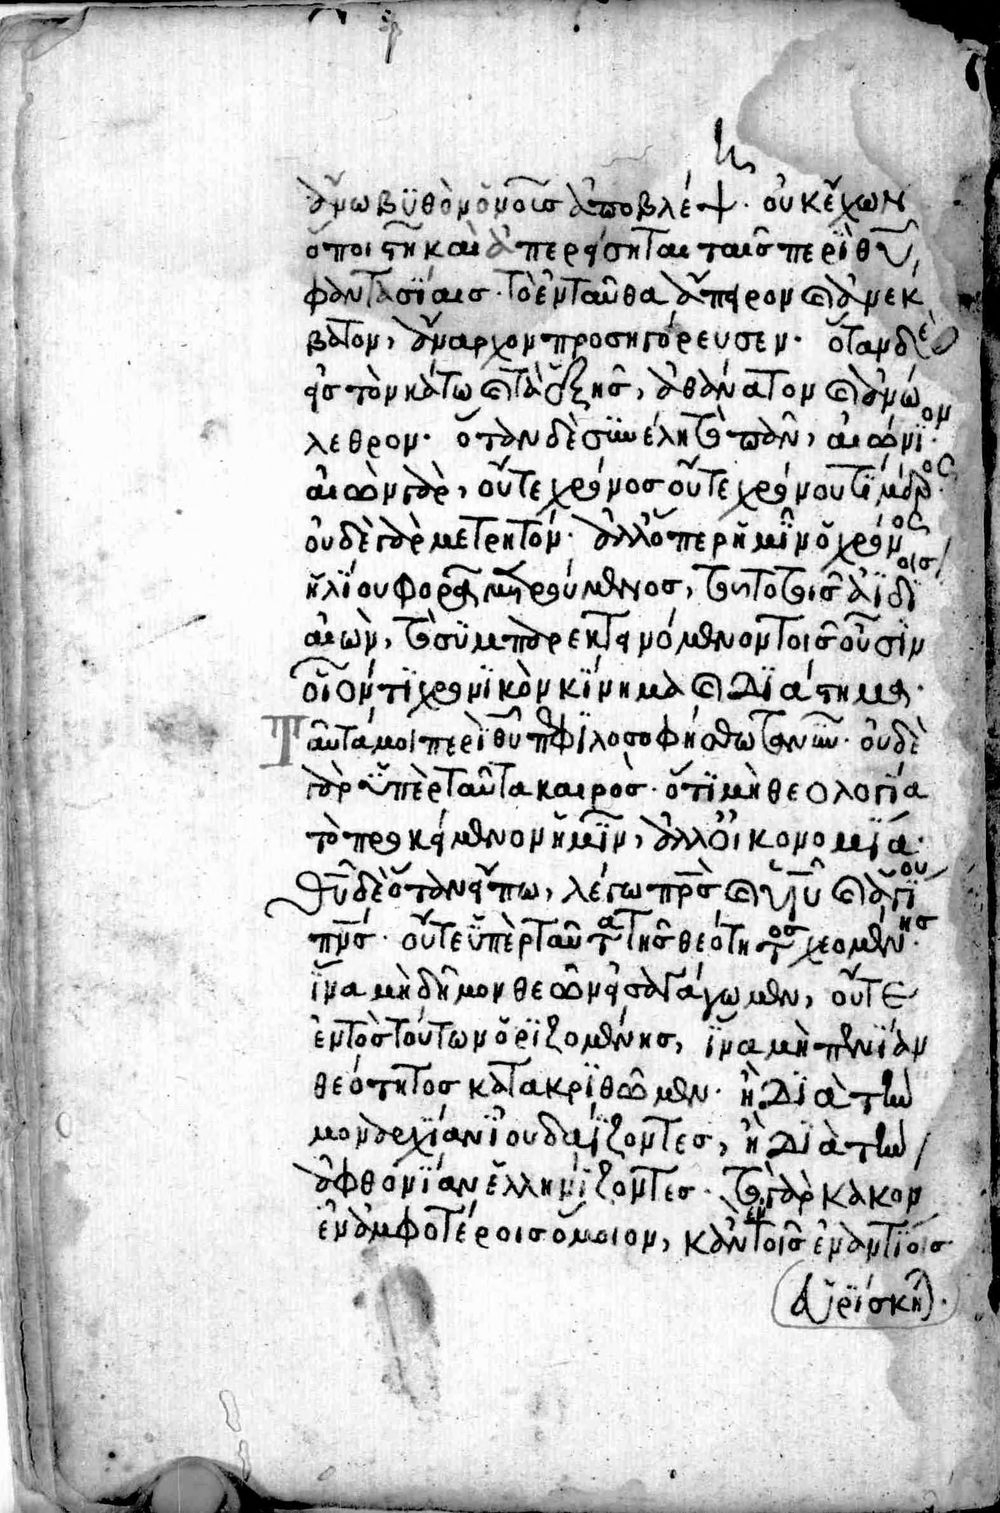 ἄνω βυθὸν ὁ νοῦς ἀποβλέψῃ· οὐκ ἔχων
ὅποι στῇ καὶ ἀπερείσηται ταῖς περὶ θεοῦ
φαντασίαις· τὸ ἐνταῦθα ἄπειρον καὶ ἀνέκ
βατον, ἄναρχον προσηγόρευσεν· ὅταν δὲ
εἰς τὸν κάτω καὶ τὰ ἑξῆς, ἀθάνατον καὶ ἀνώ
λεθρον· ὅταν δὲ συνέλῃ τὸ πᾶν, αἰώνιον·
αἰὼν γὰρ, οὔτε χρόνος οὔτε χρόνου τι μέρος·
οὐδὲ γὰρ μετρητόν· ἀλλ' ὅπερ ἡμῖν ὁ χρόνος
ἡλίου φορᾷ μετρούμενος, τοῦτο τοῖς ἀϊδίοις
αἰὼν, τὸ συμπαρεκτεινόμενον τοῖς οὖσιν
οἷόν τι χρονικὸν κίνημα καὶ διάστημα·
Ταῦτά μοι περὶ θεοῦ πεφιλοσοφήσθω τανῦν· οὐδὲ
γὰρ ὑπὲρ ταῦτα καιρὸς· ὅτι μὴ θεολογία
τὸ προκείμενον ἡμῖν, ἀλλ' οἰκονομία·
Θεοῦ δὲ ὅταν εἴπω, λέγω πατρὸς καὶ υἱοῦ καὶ ἁγίου
πνεύματος· οὔτε ὑπὲρ ταῦτα τῆς θεότητος χεομένης·
ἵνα μὴ δῆμον θεῶν εἰσαγάγωμεν, οὔτε
ἐντὸς τούτων ὁριζομένης, ἵνα μὴ πενίαν
θεότητος κατακριθῶμεν· ἢ διὰ τὴν
μοναρχίαν ἰουδαΐζοντες, ἢ διὰ τὴν
ἀφθονίαν ἑλληνίζοντες· τὸ γὰρ κακὸν
ἐν ἀμφοτέροις ὅμοιον, κἂν ἐν τοῖς ἐναντίοις
εὑρίσκηται·